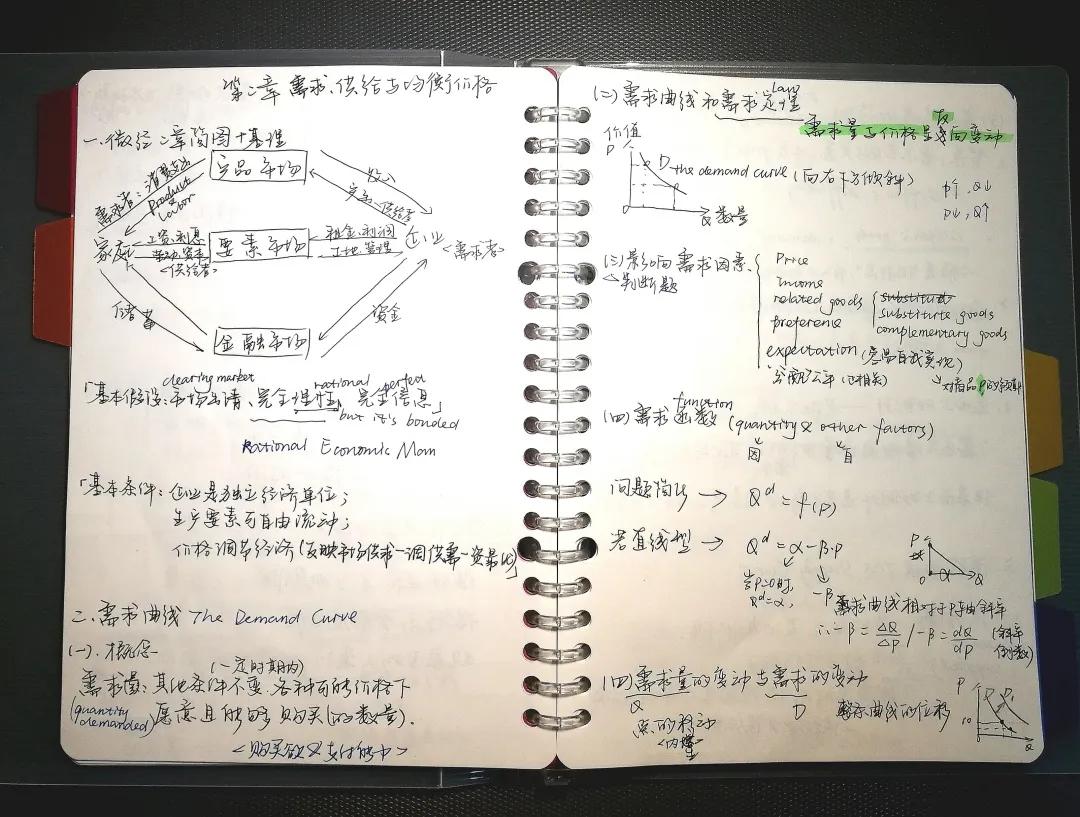 第二章 需求、供给与均衡价格
一、微经二章简图+基理
产品市场
需求者:消费支出
Product & Labor
供给者
家庭
工资、利息
劳动、资本
<供给者>
要素市场
租金、利润
土地、管理
企业
<需求者>
储蓄
金融市场
资金
clearing market rational perfect
「基本假设:市场出清、完全理性、完全信息」
but it's bonded
Rational Economic Man
「基本条件:企业是独立经济单位;
生产要素可自由流动;
价格调节经济(反映市场供求-调供需-资最优)」
二、需求曲线 The Demand Curve
(一)、概念
(一定时期内)
需求量:其他条件不变,各种可能价格下
(quantity demanded) 愿意且能够购买(的数量).
<购买欲&支付能力>
(二)需求曲线和需求定理
law
需求量与价格呈反向变动
价值
P
D the demand curve (向右下方倾斜)
0
Q 数量
P↑,Q↓
P↓,Q↑
(三)影响需求因素
△判断题
Price
income
related goods
substitute goods
complementary goods
preference
expectation (容易自我实现)
→对商品P的预期
function
(四)需求函数 (quantity & other factors)
因 自
问题简化 → Qᵈ=f(P)
若直线型 → Qᵈ=α-β·P
当P=0时,
Qᵈ=α,
-β
需求曲线相对于P轴斜率
∴-β=ΔQ/ΔP / -β=dQ/dP (斜率倒数)
P
0
α
Q
(四)需求量的变动与需求的变动
Q D
点的移动
曲线的位移
P
10
Q